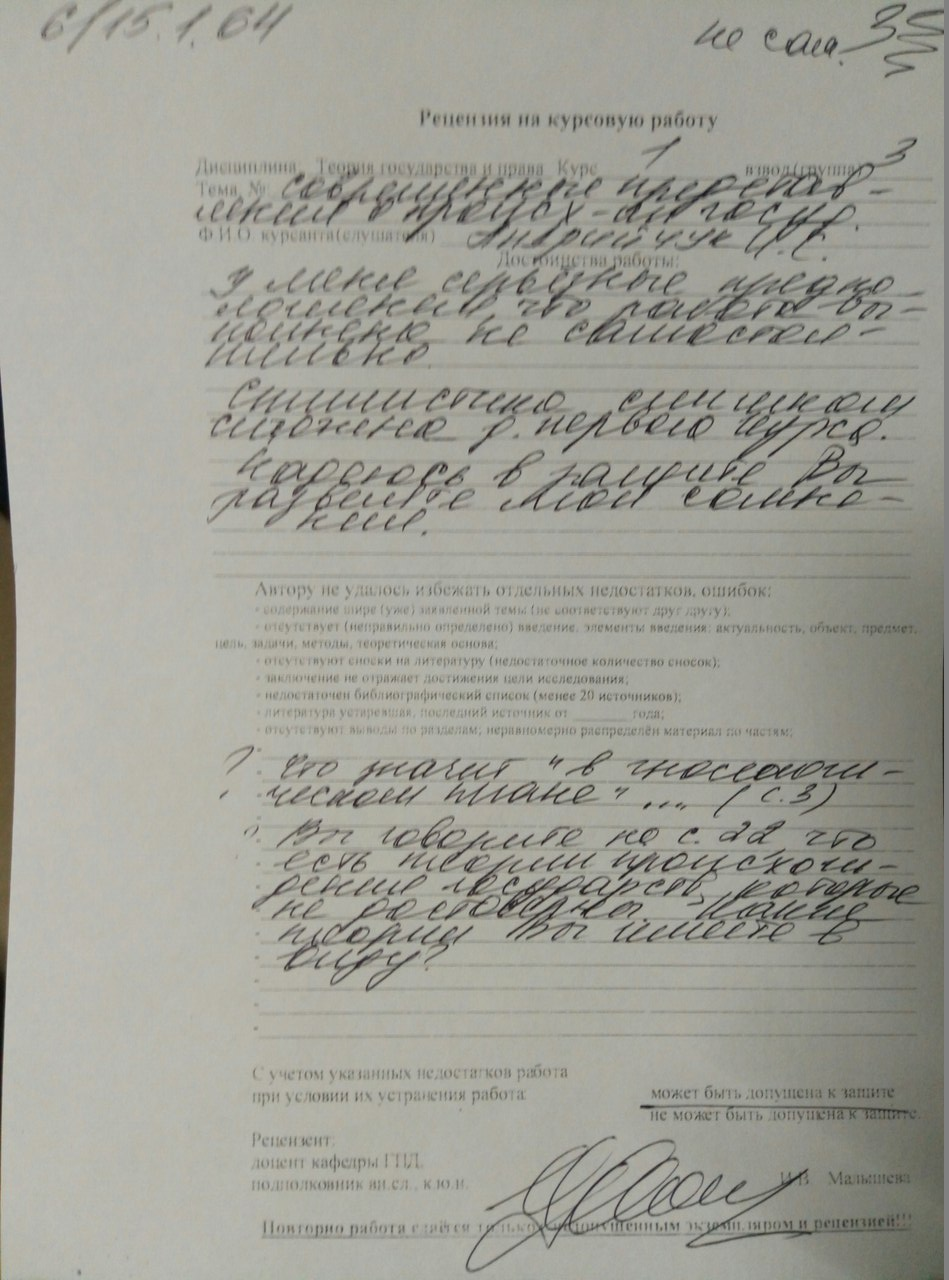 6/15.1.64
не сам.
Рецензия на курсовую работу
Дисциплина: Теория государства и права Курс 1 взвод(группа) 3
Тема № Современные представ-
ления о происх-ии госуд.
Ф.И.О. курсанта(слушателя) Андрийчук
Достоинства работы:
У меня серьёзные предпо-
ложения, что работа вы-
полнена не самостоя-
тельно.
Стилистика слишком
сложена д. первого курса.
Надеюсь в защите Вы
развеите мои сомне-
ния.
Автору не удалось избежать отдельных недостатков, ошибок:
- содержание шире (уже) заявленной темы (не соответствуют друг другу);
- отсутствует (неправильно определено) введение, элементы введения: актуальность, объект, предмет,
цель, задачи, методы, теоретическая основа;
- отсутствуют сноски на литературу (недостаточное количество сносок);
- заключение не отражает достижения цели исследования;
- недостаточен библиографический список (менее 20 источников);
- литература устаревшая, последний источник от ________ года;
- отсутствуют выводы по разделам; неравномерно распределён материал по частям;
? Что значит "в гносеологи-
ческом плане" ... (с.3)
Вы говорите на с.22 что
есть теории происхож-
дение государств, которые
не достоверны. Какие
теории Вы имеете в
виду?
С учетом указанных недостатков работа
при условии их устранения работа: может быть допущена к защите
не может быть допущена к защите.
Рецензент:
доцент кафедры ГПД,
подполковник вн.сл., к.ю.н. И.В. Малышева
Повторно работа сдаётся только с допущенным экземпляром и рецензией!!!